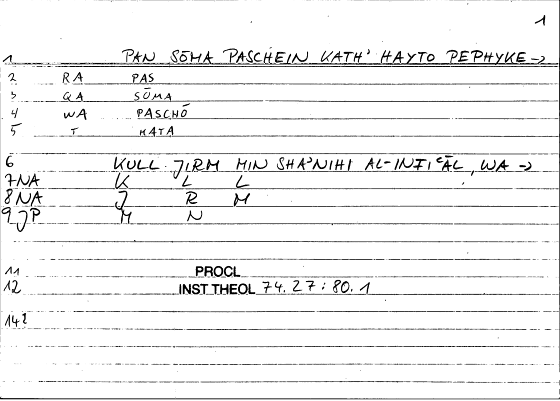 1
1 PAN SŌMA PASCHEIN KATH' HAYTO PEPHYKE->
2 RA PAS
3 QA SŌMA
4 WA PASCHŌ
5 T KATA
6 KULL JIRM MIN SHA'NIHI AL-INFIʿĀL, WA ->
7 NA K L L
8 NA J R M
9 JP M N
11 PROCL
12 INST THEOL 74.27:80.1
14